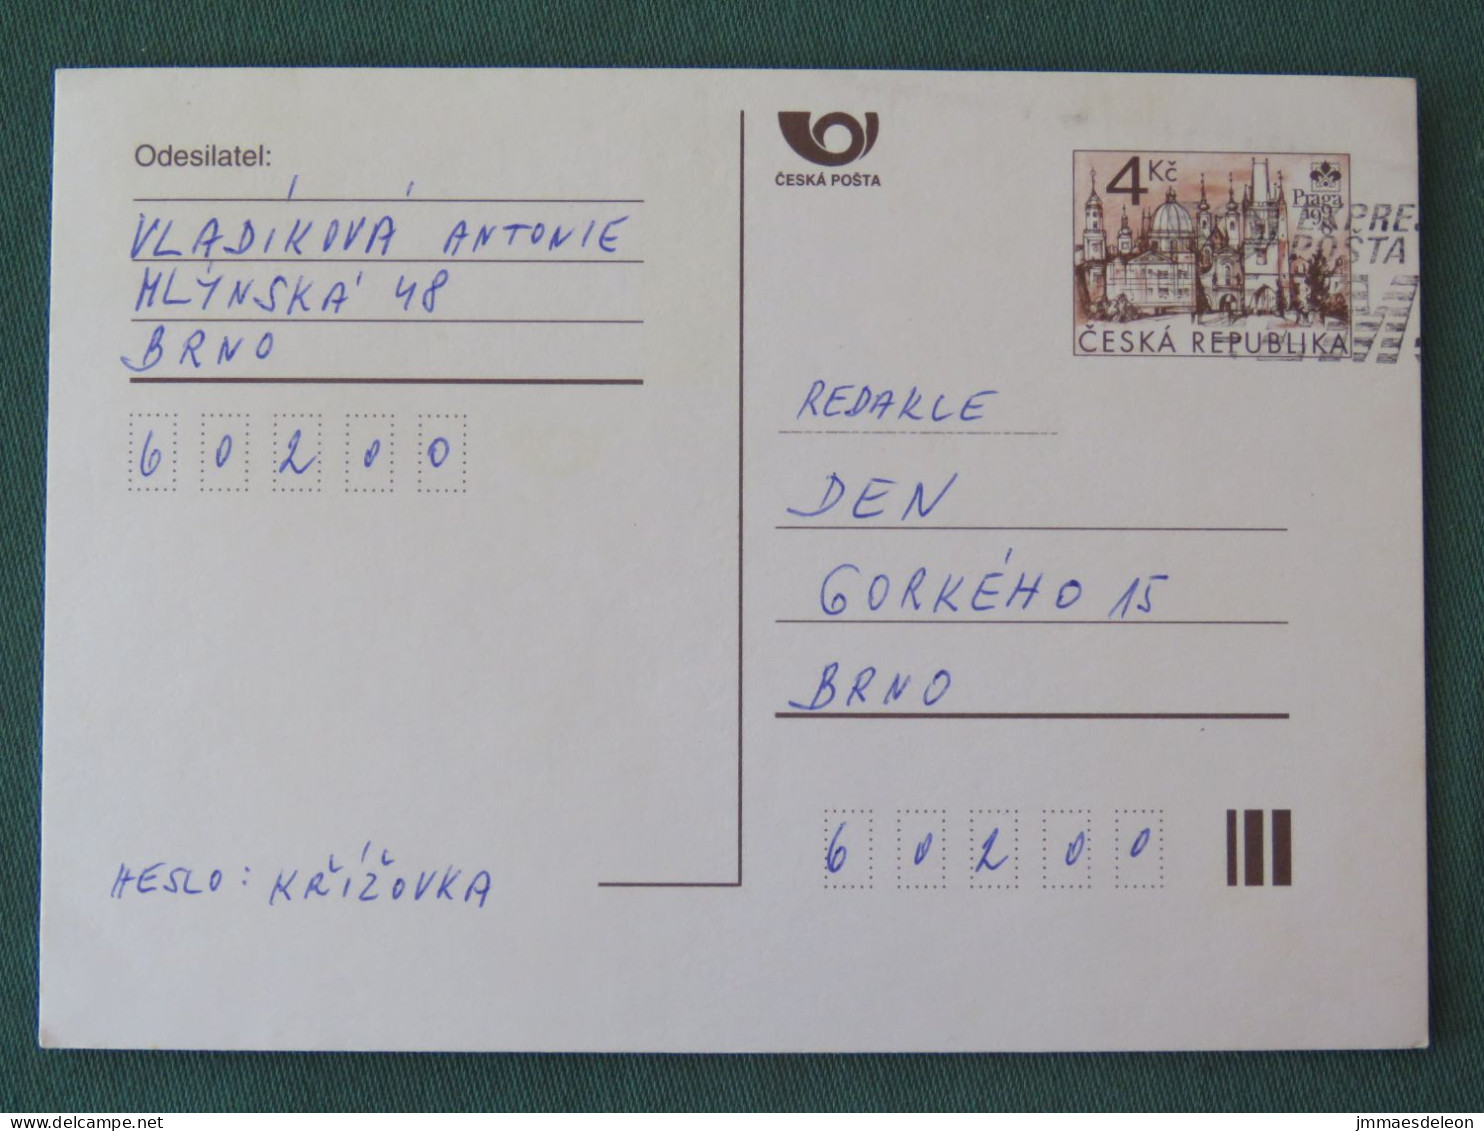 Odesilatel:
VLADÍKOVÁ ANTONIE
MLÝNSKÁ 48
BRNO
60200
HESLO: KŘÍŽOVKA
ČESKÁ POŠTA
4 Kč
Praga
1998
ČESKÁ REPUBLIKA
POŠTA
REDAKCE
DEN
GORKÉHO 15
BRNO
60200
delcampe.net
jmmaesdeleon